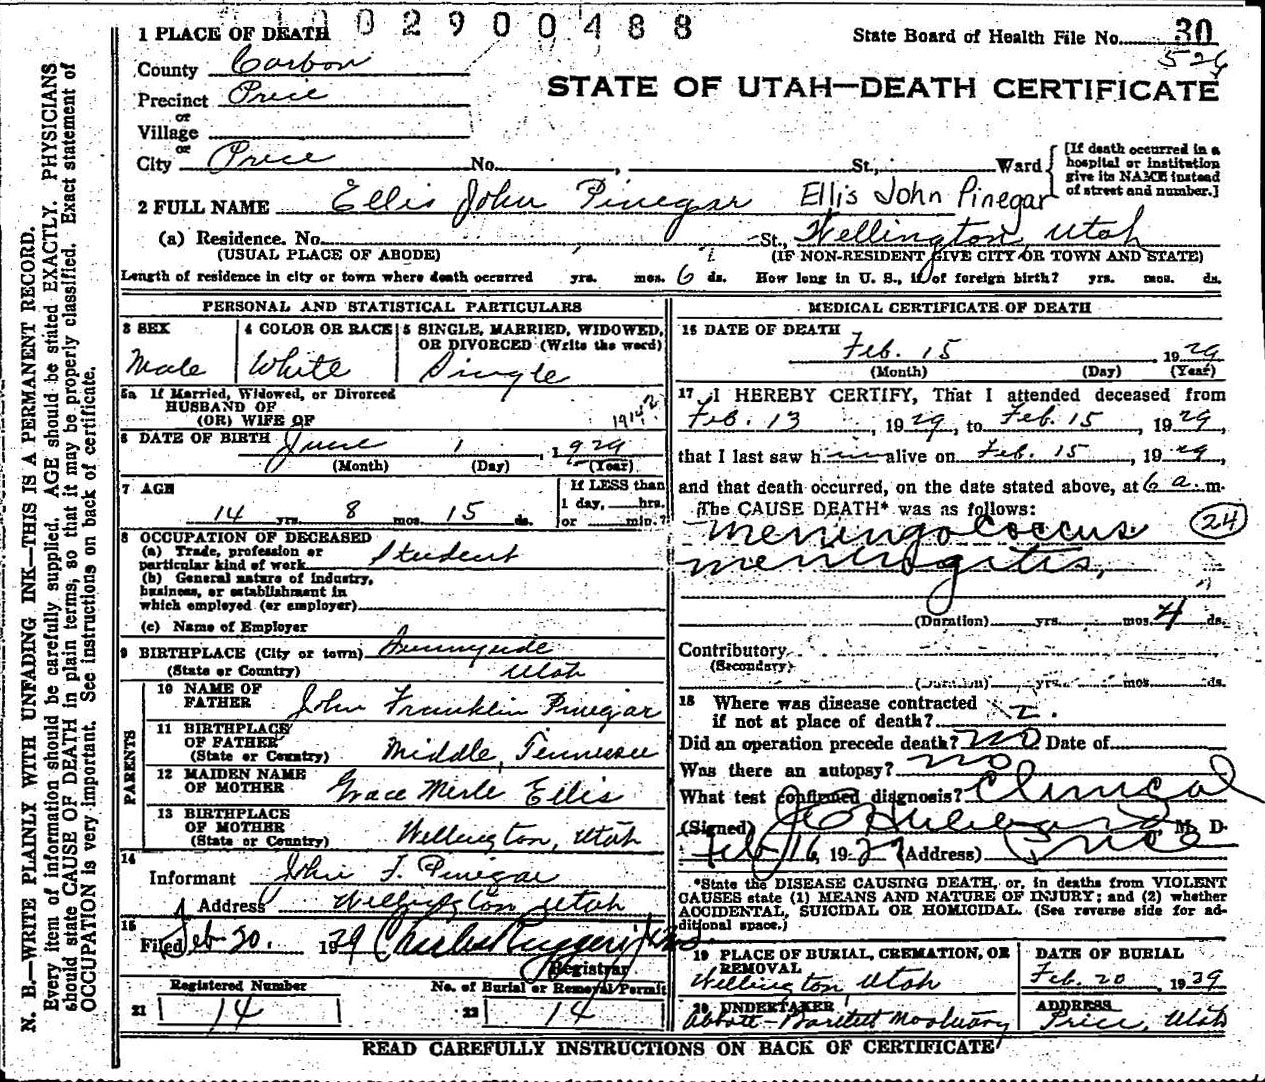 1002900488
1 PLACE OF DEATH
State Board of Health File No. 30
526
County Carbon
STATE OF UTAH—DEATH CERTIFICATE
Precinct Price
or
Village
or
City Price No. , St., Ward
[If death occurred in a hospital or institution give its NAME instead of street and number.]
2 FULL NAME Ellis John Pinegar Ellis John Pinegar
(a) Residence. No. St., Wellington, Utah
(USUAL PLACE OF ABODE) (IF NON-RESIDENT GIVE CITY OR TOWN AND STATE)
Length of residence in city or town where death occurred yrs. mos. 6 ds. How long in U. S., if of foreign birth? yrs. mos. ds.
PERSONAL AND STATISTICAL PARTICULARS
3 SEX
Male
4 COLOR OR RACE
White
5 SINGLE, MARRIED, WIDOWED, OR DIVORCED (Write the word)
Single
5a If Married, Widowed, or Divorced
HUSBAND OF
(OR) WIFE OF
1914?
6 DATE OF BIRTH June 1, 1929
(Month) (Day) (Year)
7 AGE
14 yrs. 8 mos. 15 ds.
If LESS than
1 day, hrs.
or min.?
8 OCCUPATION OF DECEASED
(a) Trade, profession or
particular kind of work Student
(b) General nature of industry,
business, or establishment in
which employed (or employer)
(c) Name of Employer
9 BIRTHPLACE (City or town) Sunnyside
(State or Country) Utah
PARENTS
10 NAME OF
FATHER John Franklin Pinegar
11 BIRTHPLACE
OF FATHER
(State or Country) Middle, Tennessee
12 MAIDEN NAME
OF MOTHER Grace Merle Ellis
13 BIRTHPLACE
OF MOTHER
(State or Country) Wellington, Utah
14
Informant John F. Pinegar
Address Wellington Utah
15
Filed Feb 20. 1929 Charles Ruggeri
Registrar
Registered Number
No. of Burial or Removal Permit
21 14
22 14
MEDICAL CERTIFICATE OF DEATH
16 DATE OF DEATH
Feb. 15 1929
(Month) (Day) (Year)
17 I HEREBY CERTIFY, That I attended deceased from
Feb. 13, 1929, to Feb. 15, 1929,
that I last saw him alive on Feb. 15, 1929,
and that death occurred, on the date stated above, at 6 a. m.
The CAUSE DEATH* was as follows:
meningococcus 24
meningitis,
(Duration) yrs. mos. 4 ds.
Contributory
(Secondary)
(Duration) yrs. mos. ds.
18 Where was disease contracted
if not at place of death? ?.
Did an operation precede death? NO Date of
Was there an autopsy? no
What test confirmed diagnosis? Clinical
(Signed) , M. D.
Feb 16, 1929 (Address) Price
*State the DISEASE CAUSING DEATH, or, in deaths from VIOLENT
CAUSES state (1) MEANS AND NATURE OF INJURY; and (2) whether
ACCIDENTAL, SUICIDAL OR HOMICIDAL. (See reverse side for ad-
ditional space.)
19 PLACE OF BURIAL, CREMATION, OR
REMOVAL
Wellington Utah
DATE OF BURIAL
Feb. 20, 1939
20 UNDERTAKER
Abbott-Bartlett Mortuary
ADDRESS
Price, Utah
READ CAREFULLY INSTRUCTIONS ON BACK OF CERTIFICATE
N. B.—WRITE PLAINLY WITH UNFADING INK—THIS IS A PERMANENT RECORD.
Every item of information should be carefully supplied. AGE should be stated EXACTLY. PHYSICIANS
should state CAUSE OF DEATH in plain terms, so that it may be properly classified. Exact statement of
OCCUPATION is very important. See instructions on back of certificate.